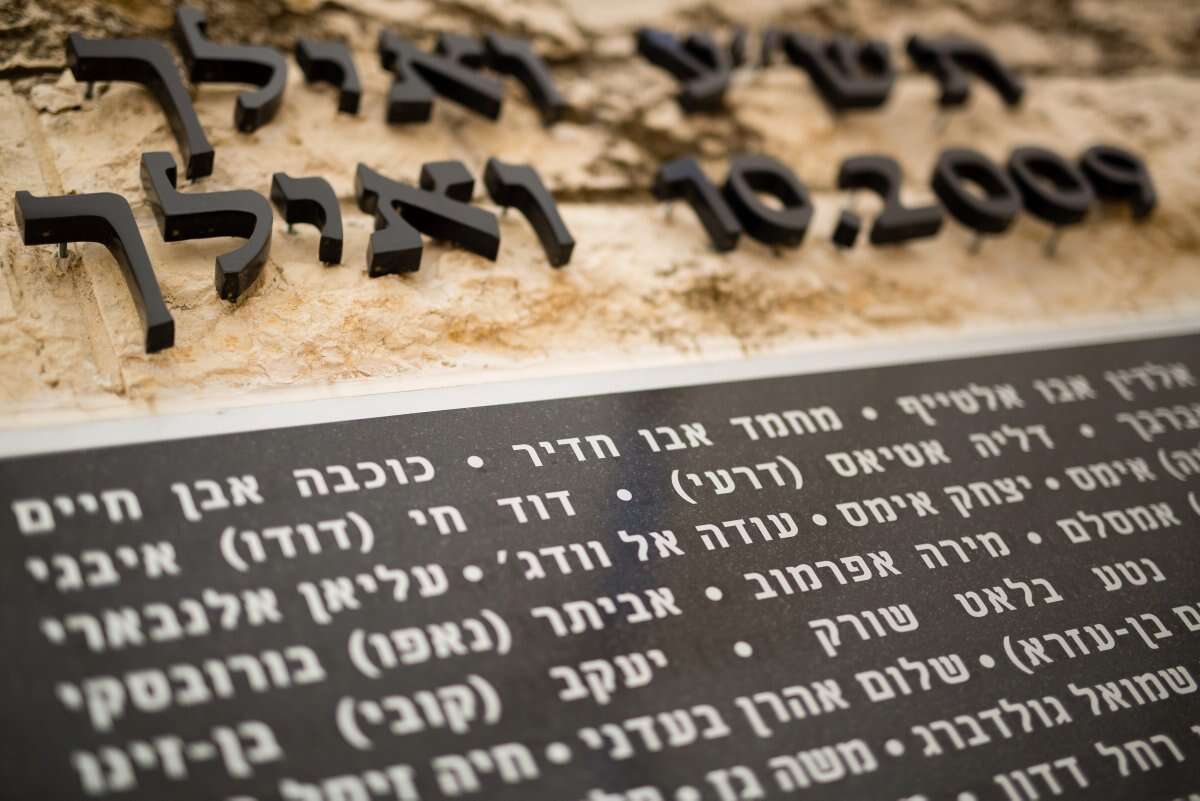 תשי״ע ואילך
10.2009 ואילך
אלדין אבו אלטייף • מחמד אבו חדיר • כוכבה אבן חיים
• דליה אטיאס (דרעי) • דוד חי (דודו) איבגי
אימס • יצחק אימס • עודה אל וודג׳ • עליאן אלנבארי
אמסלם • מירה אפרמוב • אביתר (נאפו) בורובסקי
נטע בלאט שורק • יעקב (קובי) בן-זינו
בן-עזרא) • שלום אהרן בעדני • חיה זיסל
שמואל גולדברג • משה גז •
רחל דדון